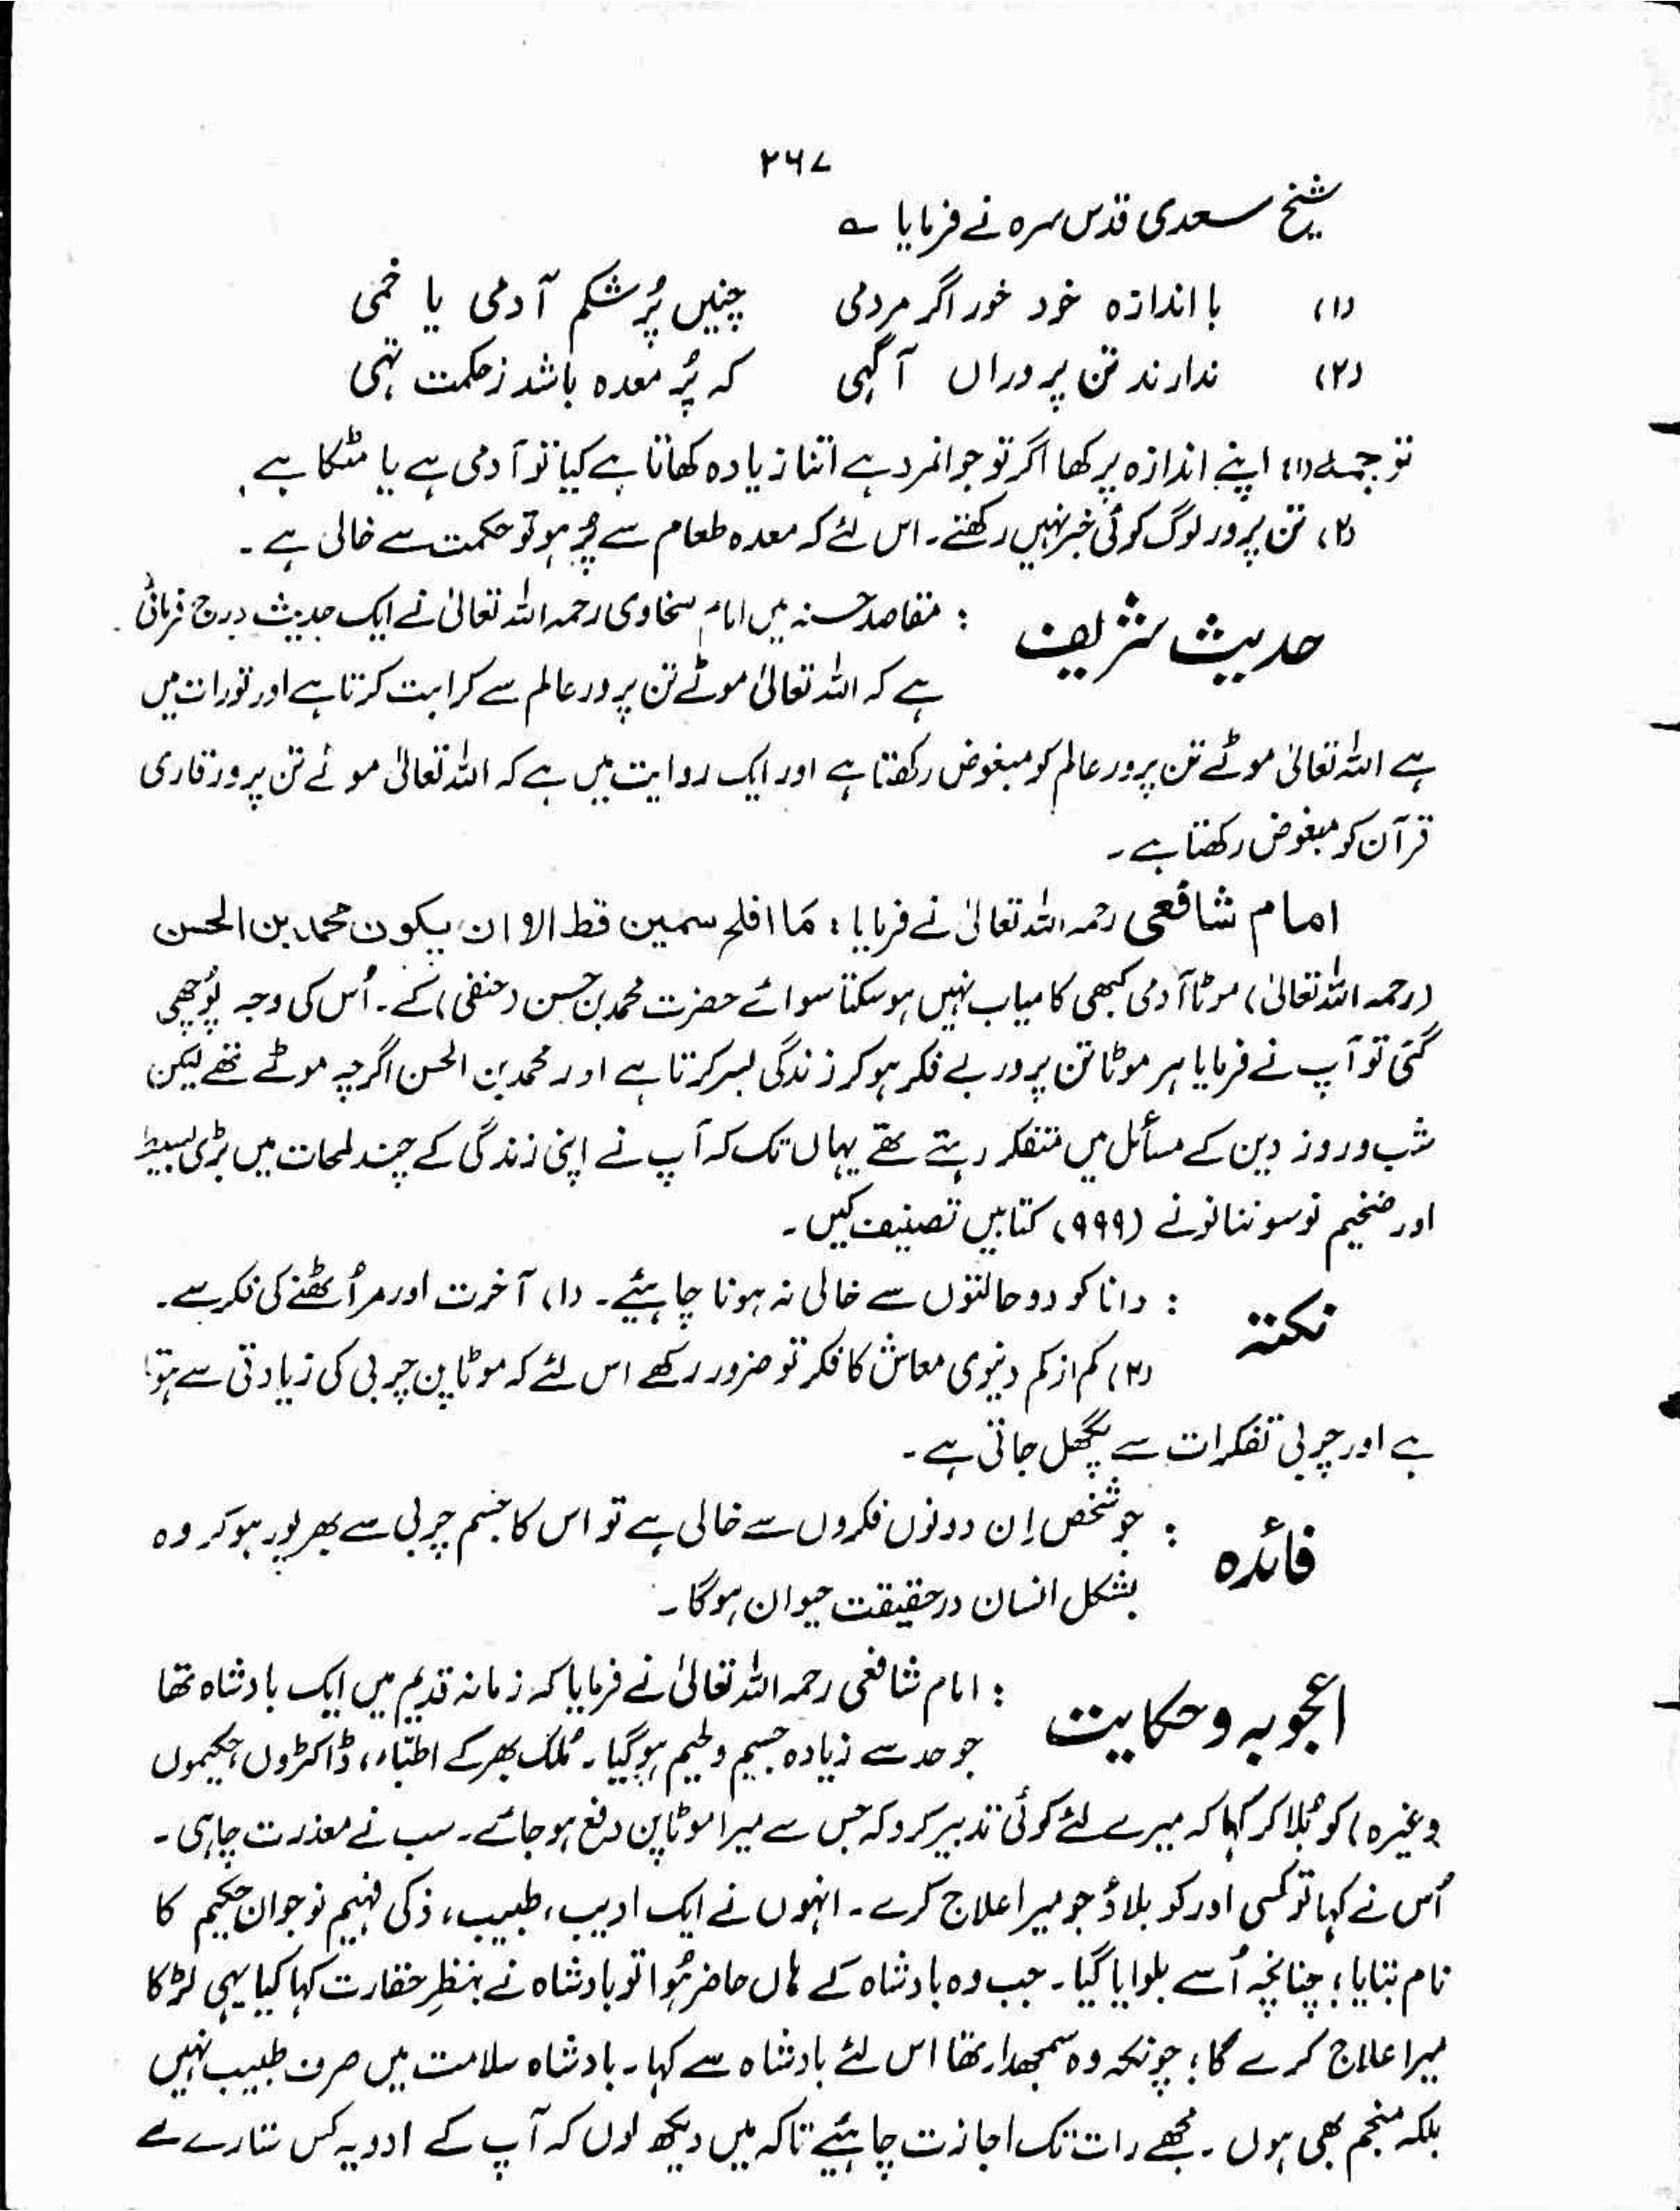 ۲۶۷
شیخ سعدی قدس سرہ نے فرمایا ؎
(۱) با اندازہ خود خور اگر مردمی چنیں پُر شکم آدمی یا خمی
(۲) ندارند تن پروراں آگہی کہ پُر معدہ باشد زحکمت تہی
ترجمہ (۱) اپنے اندازہ پر کھا اگر تو جوانمرد ہے اتنا زیادہ کھاتا ہے کیا تو آدمی ہے یا مٹکا ہے۔
(۲) تن پرور لوگ کوئی خبر نہیں رکھتے۔ اس لئے کہ معدہ طعام سے پُر ہو تو حکمت سے خالی ہے۔
حدیث شریف : مقاصد حسنہ میں امام سخاوی رحمہ اللہ تعالیٰ نے ایک حدیث درج فرمائی
ہے کہ اللہ تعالیٰ موٹے تن پرور عالم سے کراہت کرتا ہے اور تورات میں
ہے اللہ تعالیٰ موٹے تن پرور عالم کو مبغوض رکھتا ہے اور ایک روایت میں ہے کہ اللہ تعالیٰ موٹے تن پرور قاری
قرآن کو مبغوض رکھتا ہے۔
امام شافعی رحمہ اللہ تعالیٰ نے فرمایا : مَا افلح سمین قط الا ان یکون محمد بن الحسن
(رحمہ اللہ تعالیٰ) موٹا آدمی کبھی کامیاب نہیں ہو سکتا سوائے حضرت محمد بن حسن (حنفی) کے۔ اُس کی وجہ پُوچھی
گئی تو آپ نے فرمایا ہر موٹا تن پرور بے فکر ہو کر زندگی بسر کرتا ہے اور محمد بن الحسن اگرچہ موٹے تھے لیکن
شب و روز دین کے مسائل میں متفکر رہتے تھے یہاں تک کہ آپ نے اپنی زندگی کے چند لمحات میں بڑی بسیط
اور ضخیم نو سو ننانوے (۹۹۹) کتابیں تصنیف کیں۔
نکتہ : دانا کو دو حالتوں سے خالی نہ ہونا چاہیئے۔ (۱) آخرت اور مر اُٹھنے کی فکر سے۔
(۲) کم از کم دنیوی معاش کا فکر تو ضرور رکھے اس لئے کہ موٹاپن چربی کی زیادتی سے ہوتا
ہے اور چربی تفکرات سے پگھل جاتی ہے۔
فائدہ : جو شخص اِن دونوں فکروں سے خالی ہے تو اس کا جسم چربی سے بھر پور ہو کر وہ
بشکل انسان درحقیقت حیوان ہوگا۔
اعجوبہ و حکایت : امام شافعی رحمہ اللہ تعالیٰ نے فرمایا کہ زمانہ قدیم میں ایک بادشاہ تھا
جو حد سے زیادہ جسیم و لحیم ہو گیا۔ مُلک بھر کے اطبّاء، ڈاکٹروں، حکیموں
وغیرہ) کو بُلا کر کہا کہ میرے لئے کوئی تدبیر کرو کہ جس سے میرا موٹاپن دفع ہو جائے۔ سب نے معذرت چاہی۔
اُس نے کہا تو کسی اور کو بلاؤ جو میرا علاج کرے۔ انہوں نے ایک ادیب، طبیب، ذکی فہیم نوجوان حکیم کا
نام بتایا؛ چنانچہ اُسے بلوایا گیا۔ جب وہ بادشاہ کے ہاں حاضر ہُوا تو بادشاہ نے بنظرِ حقارت کہا کیا یہی لڑکا
میرا علاج کرے گا؛ چونکہ وہ سمجھدار تھا اس لئے بادشاہ سے کہا۔ بادشاہ سلامت میں صرف طبیب نہیں
بلکہ منجم بھی ہوں۔ مجھے رات تک اجازت چاہیئے تاکہ میں دیکھ لوں کہ آپ کے ادویہ کس ستارے سے